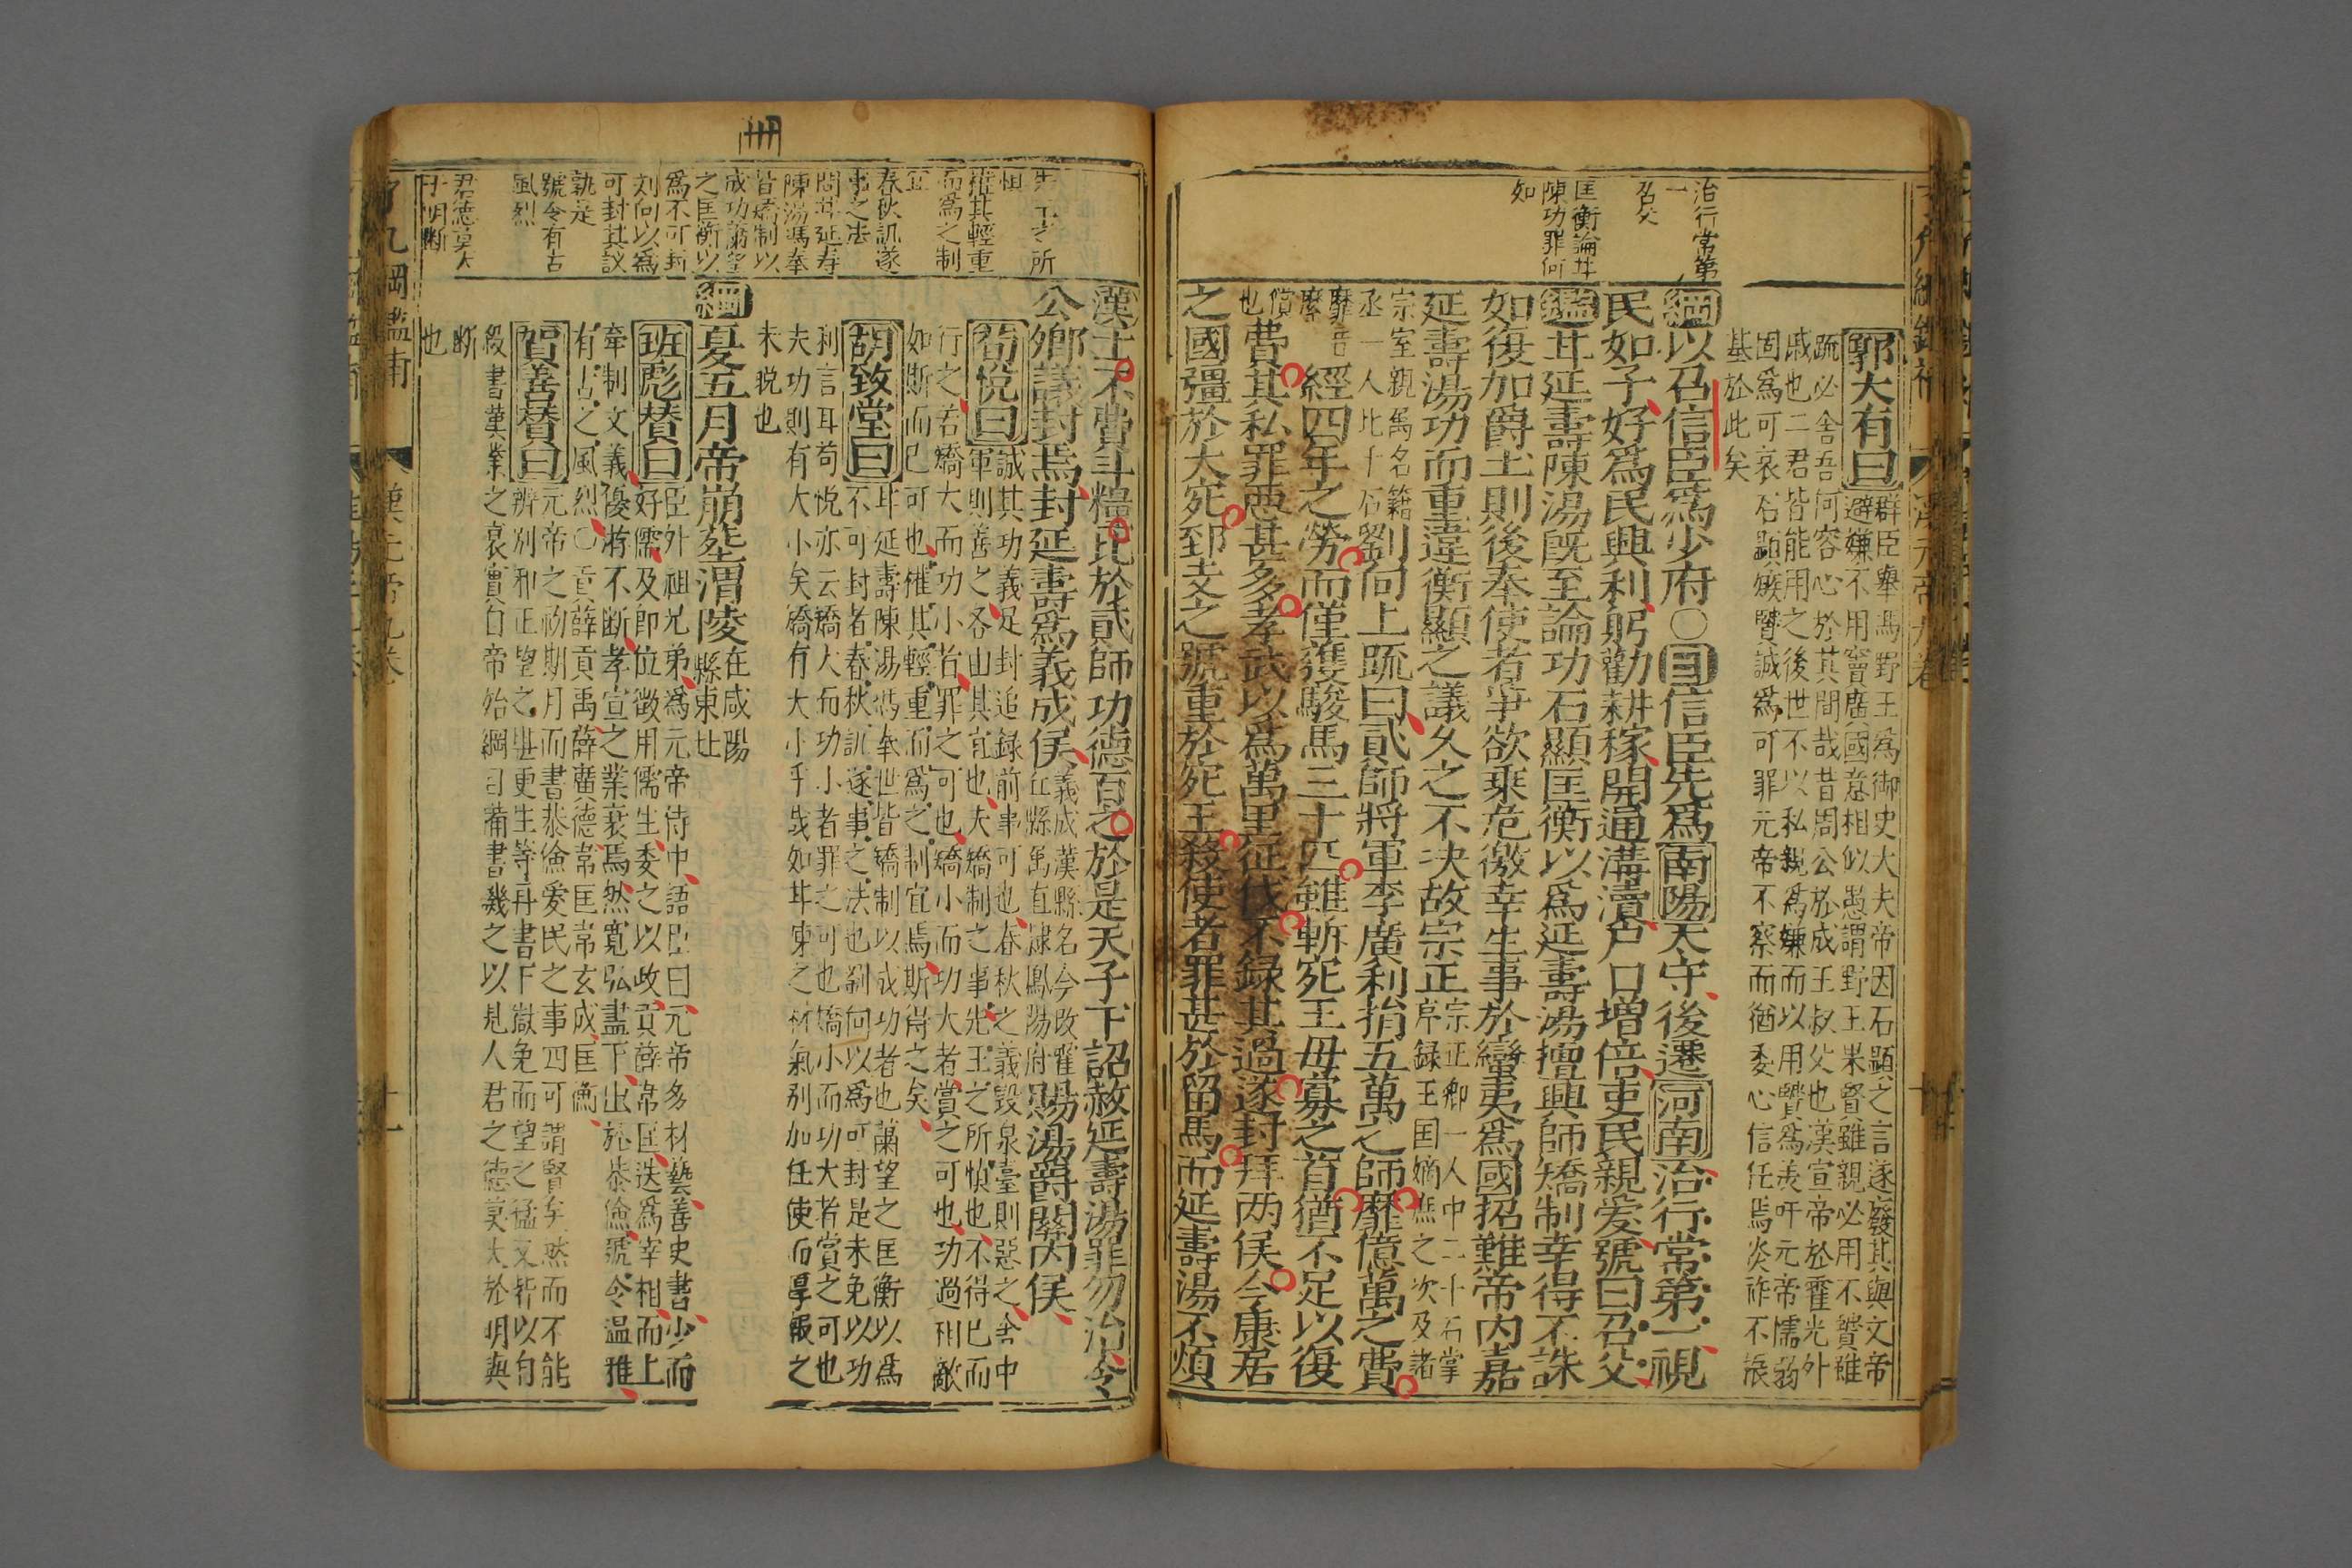 治行常第
一
召父
匡衡論甘
陳功罪何
如
郭大有曰
群臣舉馮野王爲御史大夫帝因石顯之言遂廢其與文帝
避嫌不用竇廣國意相似愚謂野王果賢雖親必用不賢雖
疏必舍吾何容心於其間哉昔周公於成王叔父也漢宣帝於霍光外
戚也二君皆能用之後世不以私親爲嫌而以用賢爲羙吁元帝懦弱
固爲可哀石顯嫉賢誠爲可罪元帝不察而猶委心信任焉炎祚不振
基於此矣
綱以召信臣爲少府○目信臣先爲南陽太守後遷河南治行常第一視
民如子好爲民興利躬勸耕稼開通溝瀆户口增倍吏民親爱號曰召父
鑑甘延壽陳湯旣至論功石顯匡衡以爲延壽湯擅興師矯制幸得不誅
如復加爵土則後奉使者爭欲乗危徼幸生事於蠻夷爲國招難帝内嘉
延壽湯功而重違衡顯之議久之不决故宗正
宗正卿一人中二千石掌
序録王国嫡庶之次及諸
宗室親属名籍
丞一人比千石
劉向上疏曰貳師將軍李廣利捐五萬之師靡億萬之費
靡音
縻
經四年之勞而僅獲駿馬三十匹雖斬宛王毋寡之首猶不足以復
償
也
費其私罪惡甚多孝武以爲萬里征伐不録其過遂封拜两侯今康居
之國彊於大宛郅支之號重於宛王殺使者罪甚於留馬而延壽湯不煩
所
權其輕重
而爲之制
宜
春秋訊遂
事之法
間甘延寿
陳湯馮奉
皆矯制以
成功蕭望
之匡衡以
爲不可封
刘向以爲
可封其議
孰是
號令有古
風烈
君德莫大
于明斷
漢士不費斗糧比於貳師功德百之於是天子下詔赦延壽湯罪勿治令
公卿議封焉封延壽爲義成侯
義成漢縣名今改霍
丘縣属直隸鳳陽府
賜湯爵關内侯
荀悅曰
誠其功義足封追録前事可也春秋之義毀泉臺則惡之舍中
軍則善之各由其宜也夫矯制之事先王之所慎也不得已而
行之若矯大而功小者罪之可也矯小而功大者賞之可也功過相敵
如斯而已可也權其輕重而爲之制宜焉斯得之矣
胡致堂曰
甘延壽陳湯馮奉世皆矯制以成功者也蕭望之匡衡以爲
不可封者春秋訊遂事之法也劉向以爲可封是未免以功
利言耳荀悅亦云矯大而功小者罪之可也矯小而功大者賞之可也
夫功則有大小矣矯有大小乎哉如甘陳之材氣别加任使而厚報之
未晚也
綱夏五月帝崩塟渭陵
在咸陽
縣東北
班彪賛曰
臣外祖兄弟爲元帝侍中語臣曰元帝多材藝善史書少而
好儒及即位徵用儒生委之以政貢薛韋匡迭爲宰相而上
牽制文義優游不断孝宣之業衰焉然寬弘盡下出於恭儉號令温雅
有古之風烈○貢薛貢禹薛廣德韋匡韋玄成匡衡
賀善賛曰
元帝之初期月而書恭儉愛民之事四可謂賢矣然而不能
辨别邪正望之堪更生等再書下獄免而望之猛又皆以自
殺書漢業之衰實自帝始綱目備書幾之以見人君之德莫大於明與
断
也
漢元帝九卷
十一